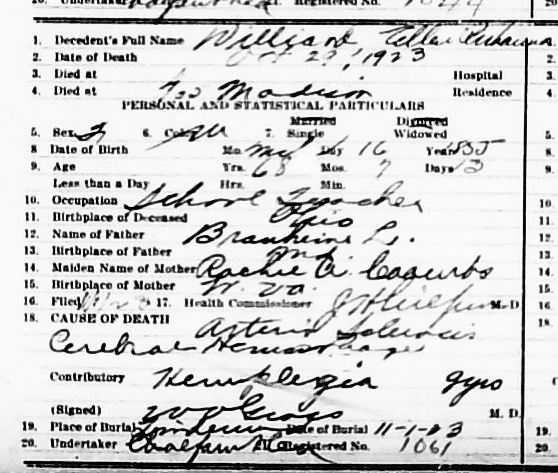 20. Undertaker Registered No. 1044
1. Decedent's Full Name Willard, Ellen
2. Date of Death Oct 29, 1923
3. Died at Hospital
4. Died at Madison Residence
PERSONAL AND STATISTICAL PARTICULARS
Married Divorced
5. Sex F 6. Color W 7. Single Widowed
8 Date of Birth Mo. Day 16 Year 1855
9. Age Yrs. 68 Mos. 7 Days 13
Less than a Day Hrs. Min.
10. Occupation School Teacher
11. Birthplace of Deceased Ohio
12. Name of Father L.
13. Birthplace of Father Md
14. Maiden Name of Mother A.
15. Birthplace of Mother W. Va.
16. Filed 17. Health Commissioner M. D
18. CAUSE OF DEATH Arterio Sclerosis
Cerebral Hemorrhage
Contributory Hemiplegia 2yrs
(Signed) M. D.
19. Place of Burial Date of Burial 11-1-23
20. Undertaker Registered No. 1061